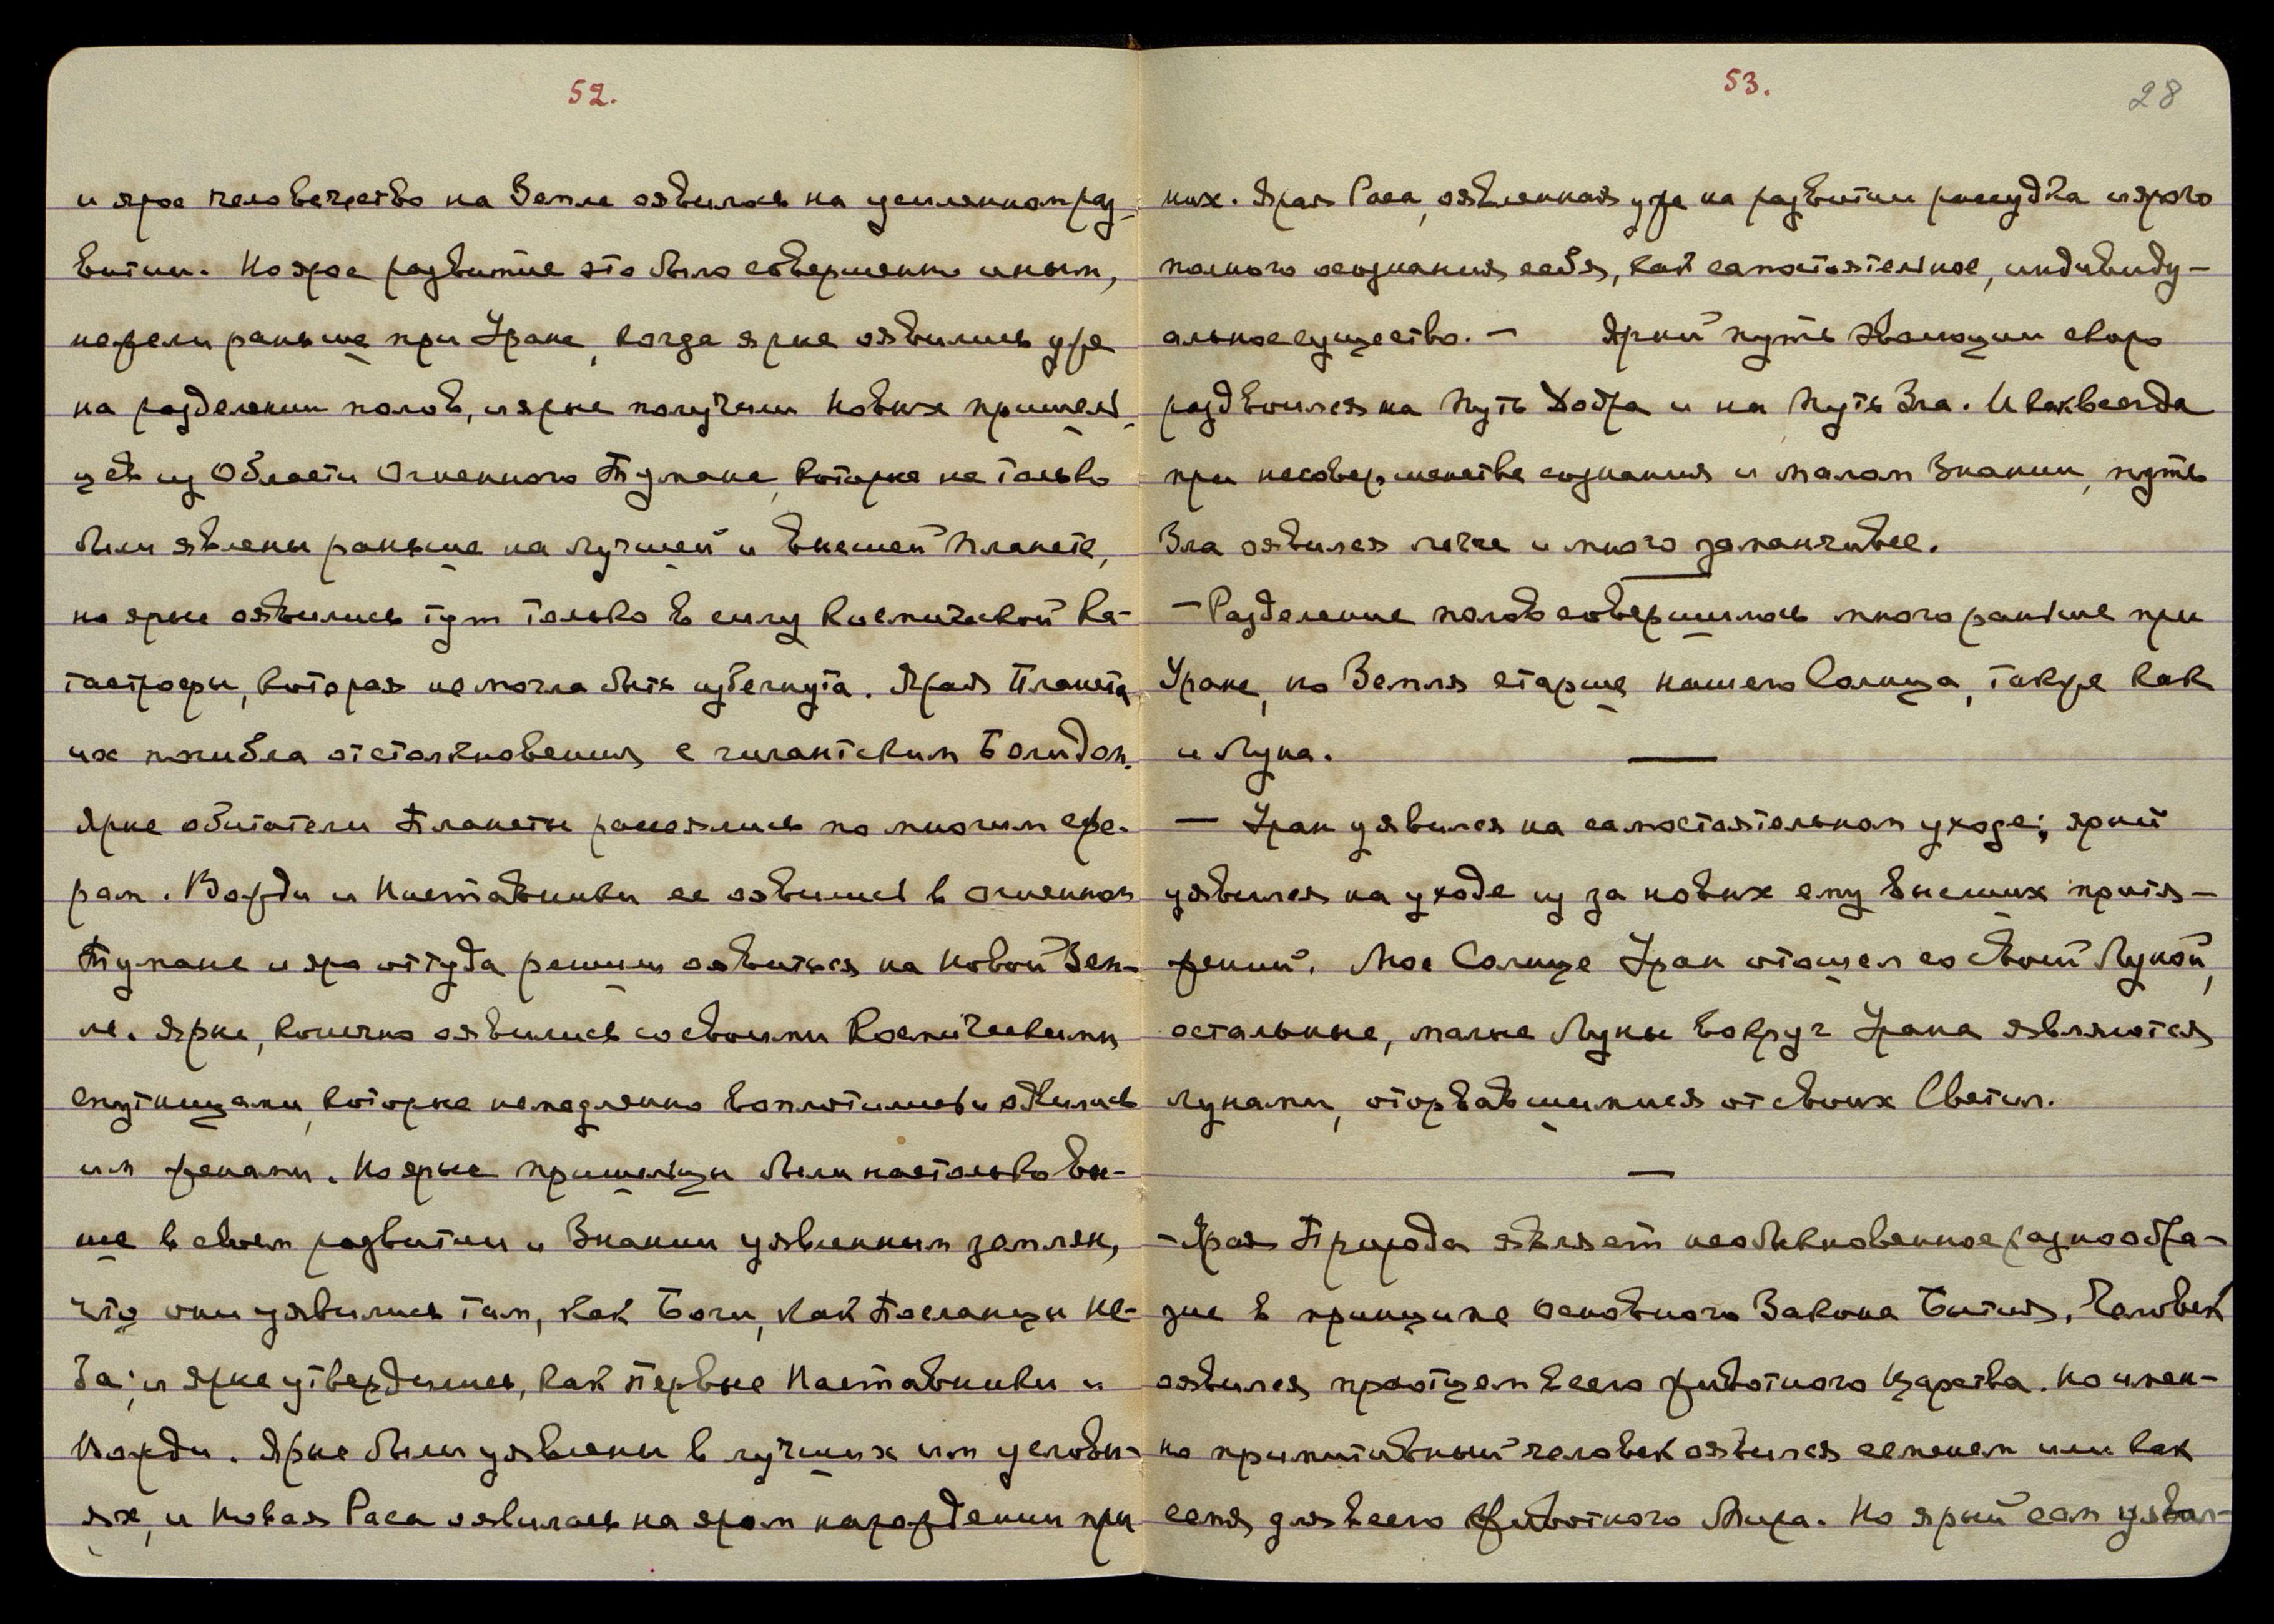 52.
и ярое человечество на Земле оявилось на усиленном раз-
витии. Но ярое развитие это было совершенно иным,
нежели раньше при Уране, когда ярые оявились уже
на разделении полов, и ярые получили новых пришель-
цев из Области Огненного Тумана, которые не только
были явлены раньше на лучшей и высшей планете,
но ярые оявились тут только в силу космической ка-
тастрофы, которая не могла быть избегнута. Ярая Планета
их погибла от столкновения с гигантским Болидом.
Ярые обитатели Планеты рассеялись по многим сфе-
рам. Вожди и Наставники ее оявились в Огненном
Тумане и яро оттуда решили оявиться на новой Зем-
ле. Ярые, конечно оявились со своими Космическими
спутницами, которые немедленно воплотились и оявились
им женами. Но ярые пришельцы были настолько вы-
ше в своем развитии и Знании уявленным землян,
что они уявились там, как Боги, как Посланцы Не-
ба; и ярые утвердились, как первые Наставники и
Вожди. Ярые были уявлены в лучших им услови-
ях, и Новая Раса оявилась на яром нарождении при
53.
28
них. Ярая Раса, оявленная уже на развитии рассудка и ярого
полного осознания себя, как самостоятельное, индивиду-
альное существо. – Ярый путь эволюции скоро
раздвоился на Путь Добра и на Путь Зла. И как всегда
при несовершенстве сознания и малом Знании, путь
Зла оявился легче и много заманчивее.
– Разделение полов совершилось много раньше при
Уране, но Земля старше нашего Солнца, также как
и Луна.
– Уран уявился на самостоятельном уходе; ярый
уявился на уходе из за новых ему высших притя-
жений. Мое Солнце Уран отошел со своей Луной,
остальные, малые Луны вокруг Урана являются
лунами, оторвавшимися от своих Светил.
– Ярая Природа являет необыкновенное разнообра-
зие в принципе основного Закона Бытия. Человек
оявился праотцем всего животного царства. Но имен-
но примитивный человек оявился семенем или как
семя для всего животного Мира. Но ярый сам уявил-